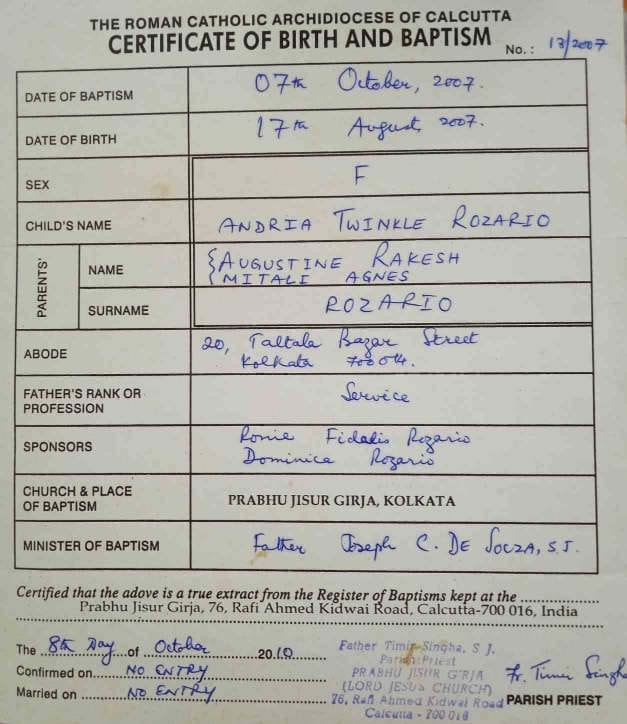 THE ROMAN CATHOLIC ARCHIDIOCESE OF CALCUTTA
CERTIFICATE OF BIRTH AND BAPTISM
No.: 13/2007
DATE OF BAPTISM 07th October, 2007.
DATE OF BIRTH 17th August, 2007.
SEX F
CHILD'S NAME ANDRIA TWINKLE ROZARIO
PARENTS' NAME {AUGUSTINE RAKESH
MITALI AGNES
SURNAME ROZARIO
ABODE 20, Taltala Bazar Street
Kolkata 700014.
FATHER'S RANK OR
PROFESSION Service
SPONSORS Ronie Fidalis Rozario
Dominica Rozario
CHURCH & PLACE
OF BAPTISM PRABHU JISUR GIRJA, KOLKATA
MINISTER OF BAPTISM Father Joseph C. DE SOUZA, S.J.
Certified that the adove is a true extract from the Register of Baptisms kept at the ..................
Prabhu Jisur Girja, 76, Rafi Ahmed Kidwai Road, Calcutta-700 016, India
The 8th Day of October 2010
Confirmed on NO ENTRY
Married on NO ENTRY
Father Timir Singha, S. J.
Parish Priest
PRABHU JISUR GIRJA
(LORD JESUS CHURCH)
76, Rafi Ahmed Kidwai Road
Calcutta - 700 016
Fr. Timir Singha
PARISH PRIEST